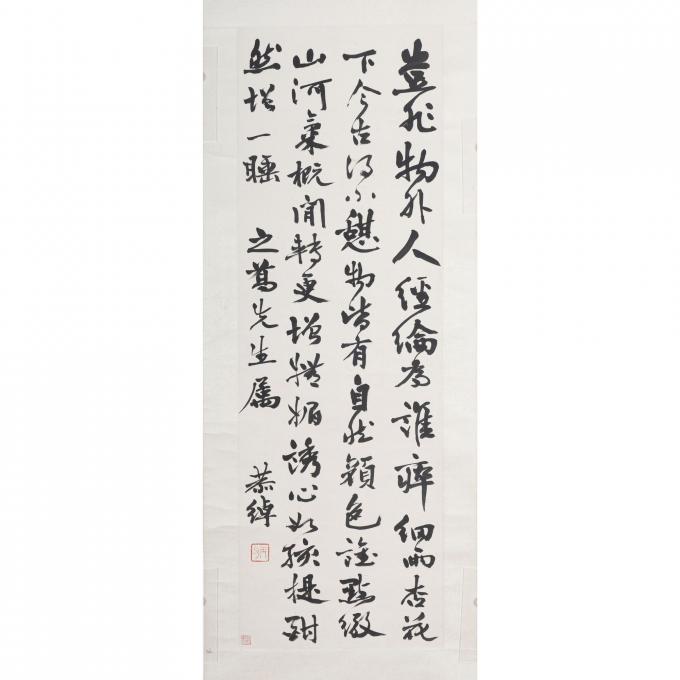 豈非物外人經綸為誰瘁細雨杏花
下今古得小憩物皆有自然顏色誰點綴
山河氣概間轉更增嫵媚誘心如孩提酣
然堪一睡 之萬先生屬 恭綽